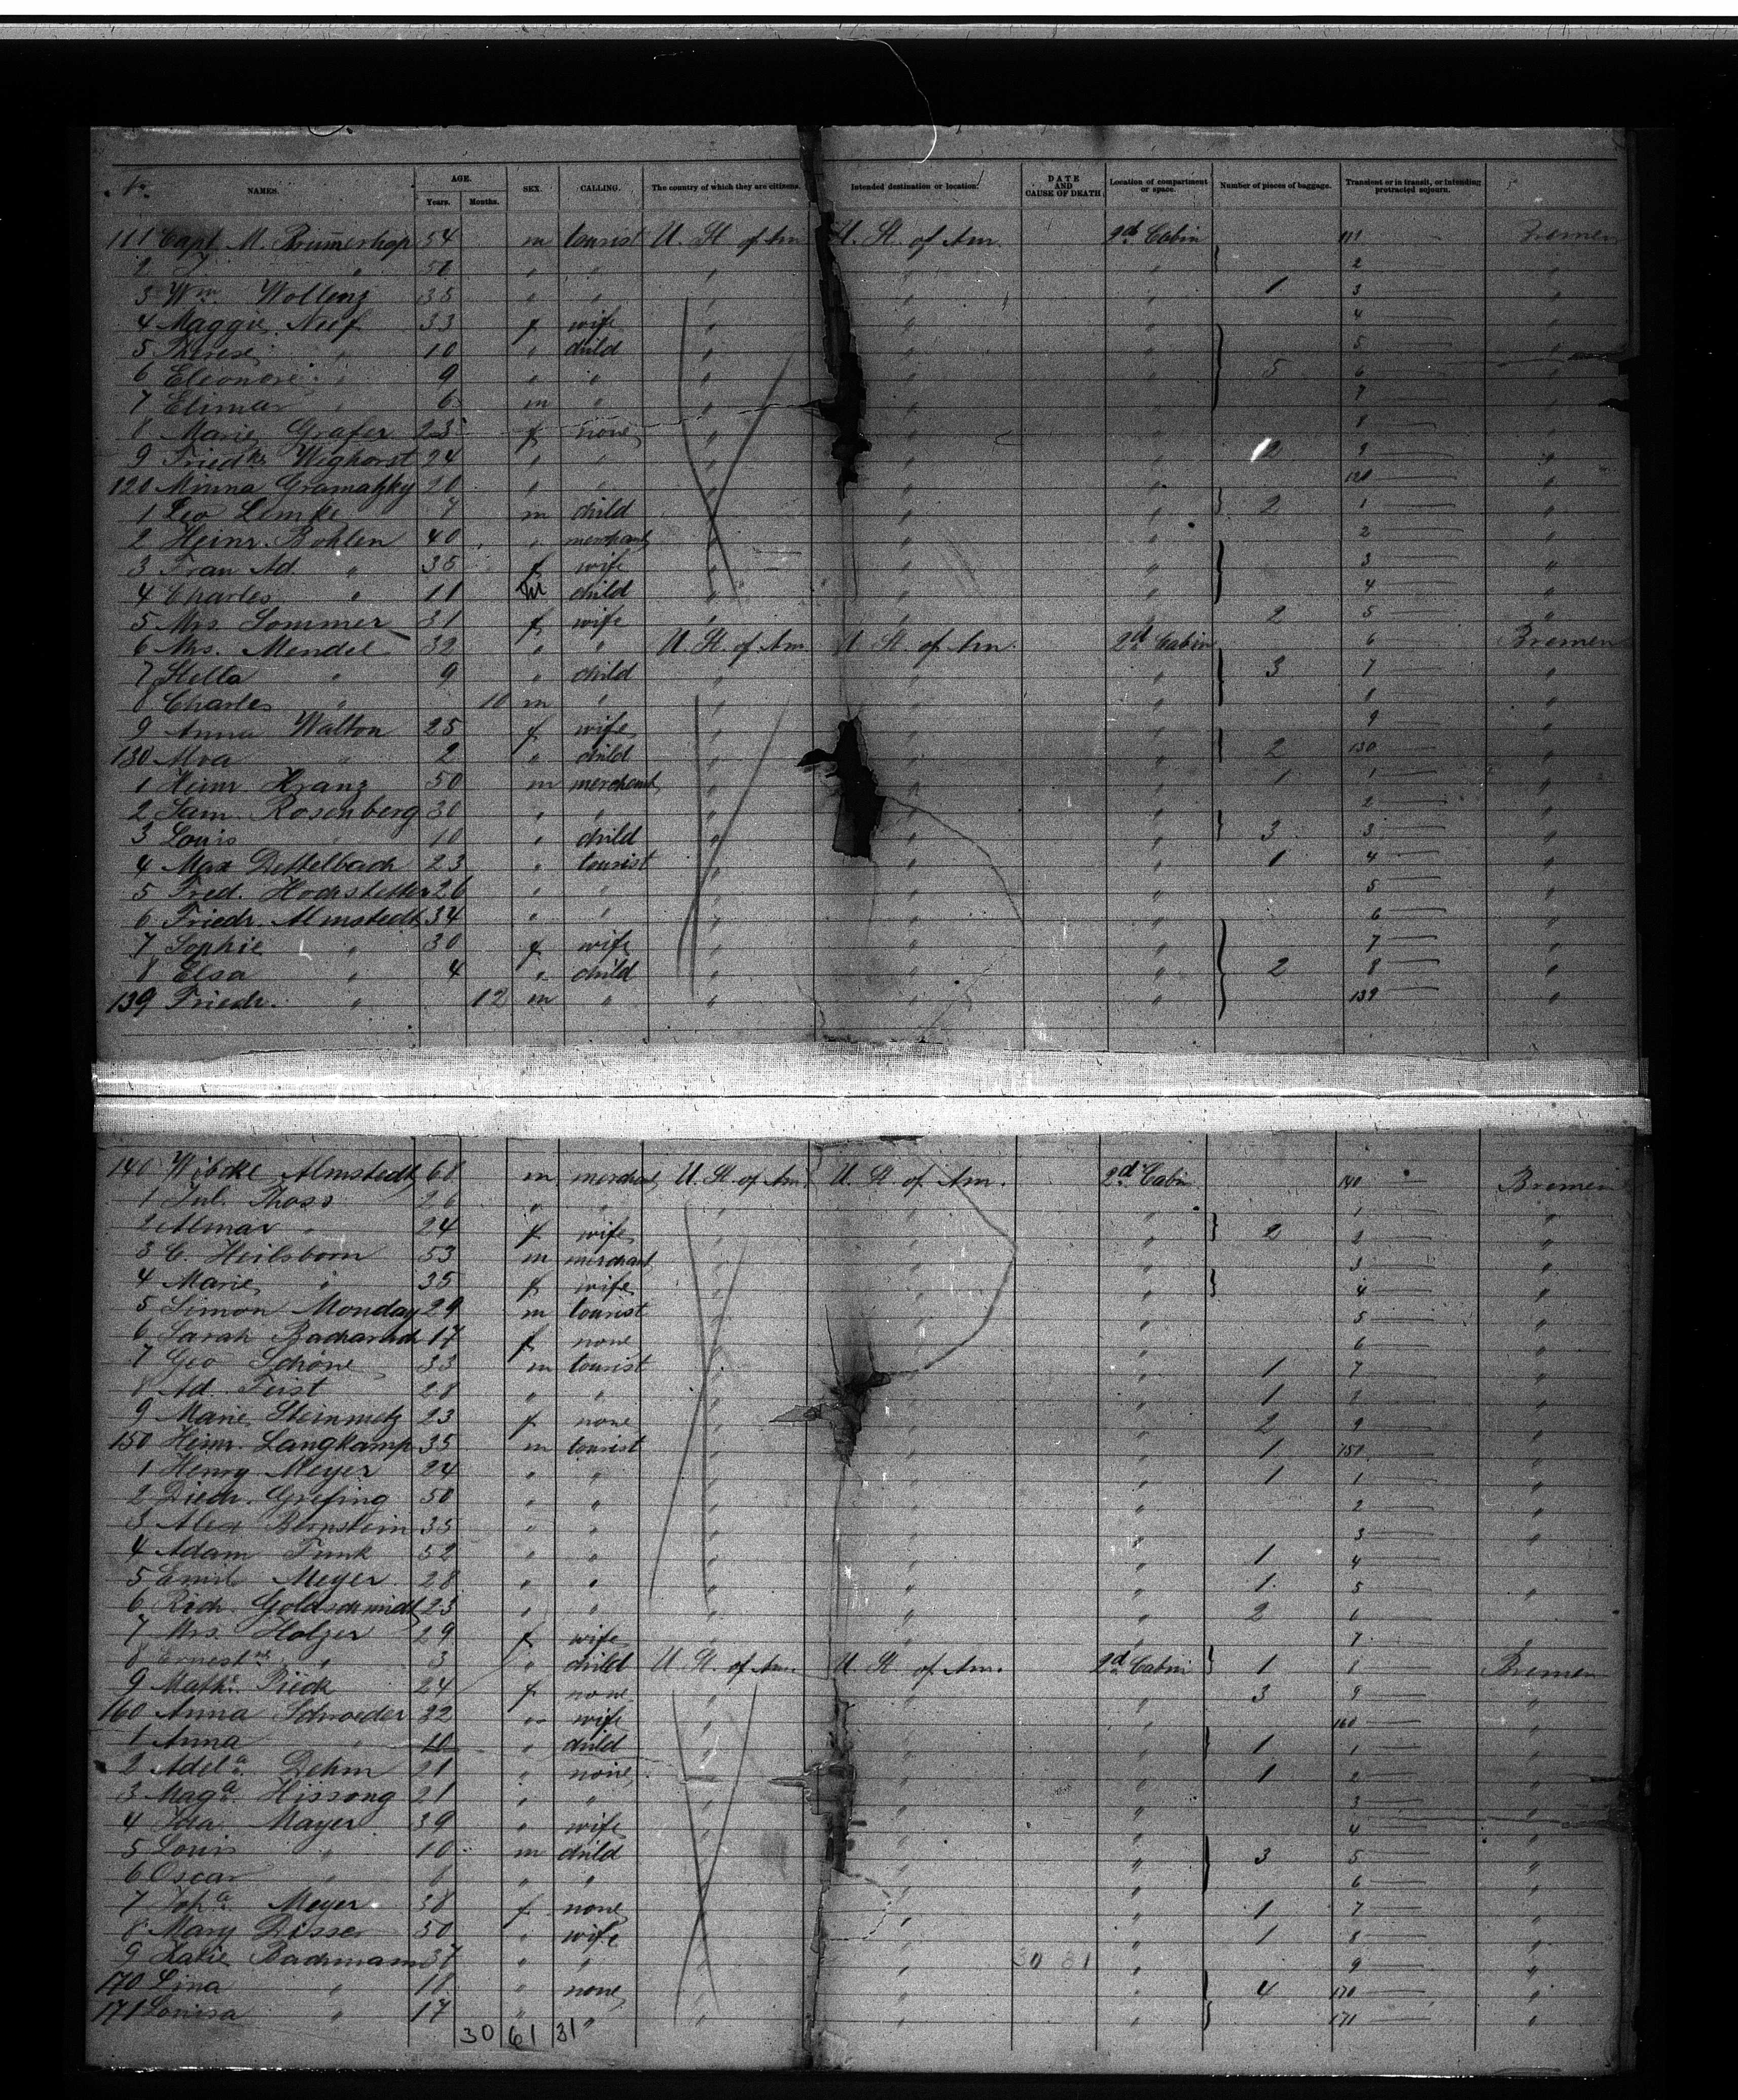 No. NAMES. AGE. Years. Months. SEX. CALLING. The country of which they are citizens. Intended destination or location. DATE AND CAUSE OF DEATH. Location of compartment or space. Number of pieces of baggage. Transient or in transit, or intending protracted sojourn.
111 Capt. M. Brumerhop 54 m tourist U. St. of Am U. St. of Am. 2d Cabin 111 Bremen
2 " 50 " " " " " 2 "
3 Wm. Wollenz 35 " " " " " 1 3 "
4 Maggie Neef 33 f wife " " " 4 "
5 Therese " 10 " child " " " 5 "
6 Eleonore " 9 " " " " " 5 6 "
7 Elimar " 6 m " " " " 7 "
8 Marie Grafer 23 f none " " " 8 "
9 Friedke Weghorst 24 " " " " " 2 9 "
120 Minna Gramatzky 20 " " " " " 120 "
1 Leo Lemke 7 m child " " " 2 1 "
2 Heinr. Bohlen 40 " merchant " " " 2 "
3 Frau Ad. " 35 f wife " " " 3 "
4 Charles " 11 m child " " " 4 "
5 Mrs. Sommer 31 f wife " " " 2 5 "
6 Mrs. Mendel 32 " " U. St. of Am. U. St. of Am. 2d Cabin 6 Bremen
7 Hella " 9 " child " " " 3 7 "
8 Charles " 10 m " " " " 8 "
9 Anna Walton 25 f wife " " " 9 "
130 Alva " 2 " child " " " 2 130 "
1 Heinr Kranz 50 m merchant " " " 1 1 "
2 Sam. Rosenberg 30 " " " " " 2 "
3 Louis " 10 " child " " " 3 3 "
4 Max Dettelbach 23 " tourist " " " 1 4 "
5 Fred. Hochstetter 26 " " " " " 5 "
6 Friedr. Almstedt 34 " " " " " 6 "
7 Sophie " 30 f wife " " " 7 "
8 Elsa " 4 " child " " " 2 8 "
139 Friedr. " 12 m " " " " 139 "
140 Wibcke Almstedt 68 m merchant U. St. of Am. U. St. of Am. 2d Cabin 140 Bremen
1 Jul. Thoss 26 " " " " " 1 "
2 Almar " 24 f wife " " " 2 2 "
3 C. Heilsborn 53 m merchant " " " 3 "
4 Marie " 35 f wife " " " 4 "
5 Simon Monday 29 m tourist " " " 5 "
6 Sarah Bacharach 17 f none " " " 6 "
7 Geo Schöne 33 m tourist " " " 1 7 "
8 Ad. Feist 28 " " " " " 1 8 "
9 Marie Steinmetz 23 f none " " " 2 9 "
150 Heinr. Langkamp 35 m tourist " " " 1 151 "
1 Henry Meyer 24 " " " " " 1 1 "
2 Diedr. Grefing 50 " " " " " 2 "
3 Alex Bernstein 35 " " " " " 3 "
4 Adam Funk 52 " " " " " 1 4 "
5 Emil Meyer 28 " " " " " 1 5 "
6 Rich. Goldschmidt 23 " " " " " 2 6 "
7 Mrs. Holzer 29 f wife " " " 7 "
8 Ernestne " 3 " child U. St. of Am. U. St. of Am. 2d Cabin 1 8 Bremen
9 Mathe. Rieck 24 f none " " " 3 9 "
160 Anna Schroeder 32 " wife " " " 160 "
1 Anna " 10 " child " " " 1 1 "
2 Adela. Dehm 21 " none " " " 1 2 "
3 Maga. Hissong 21 " " " " " 3 "
4 Ida Mayer 39 " wife " " " 4 "
5 Louis " 10 m child " " " 3 5 "
6 Oscar " 6 " " " " " 6 "
7 Joha. Meyer 38 f none " " " 1 7 "
8 Mary Disser 50 " wife " " " 1 8 "
9 Katie Bachmann 37 " " " " 30 31 " 9 "
170 Lina " 18 " none " " " 4 170 "
171 Louisa " 17 " " " " " 171 "
30 61 31